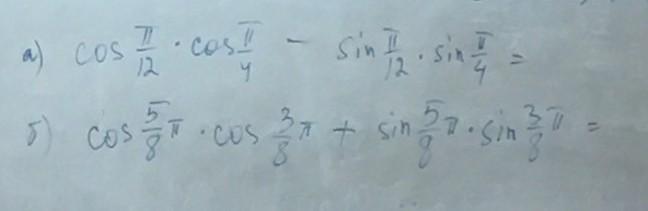 а) cos π/12 · cos π/4 − sin π/12 · sin π/4 =
б) cos 5/8 π · cos 3/8 π + sin 5/8 π · sin 3/8 π =